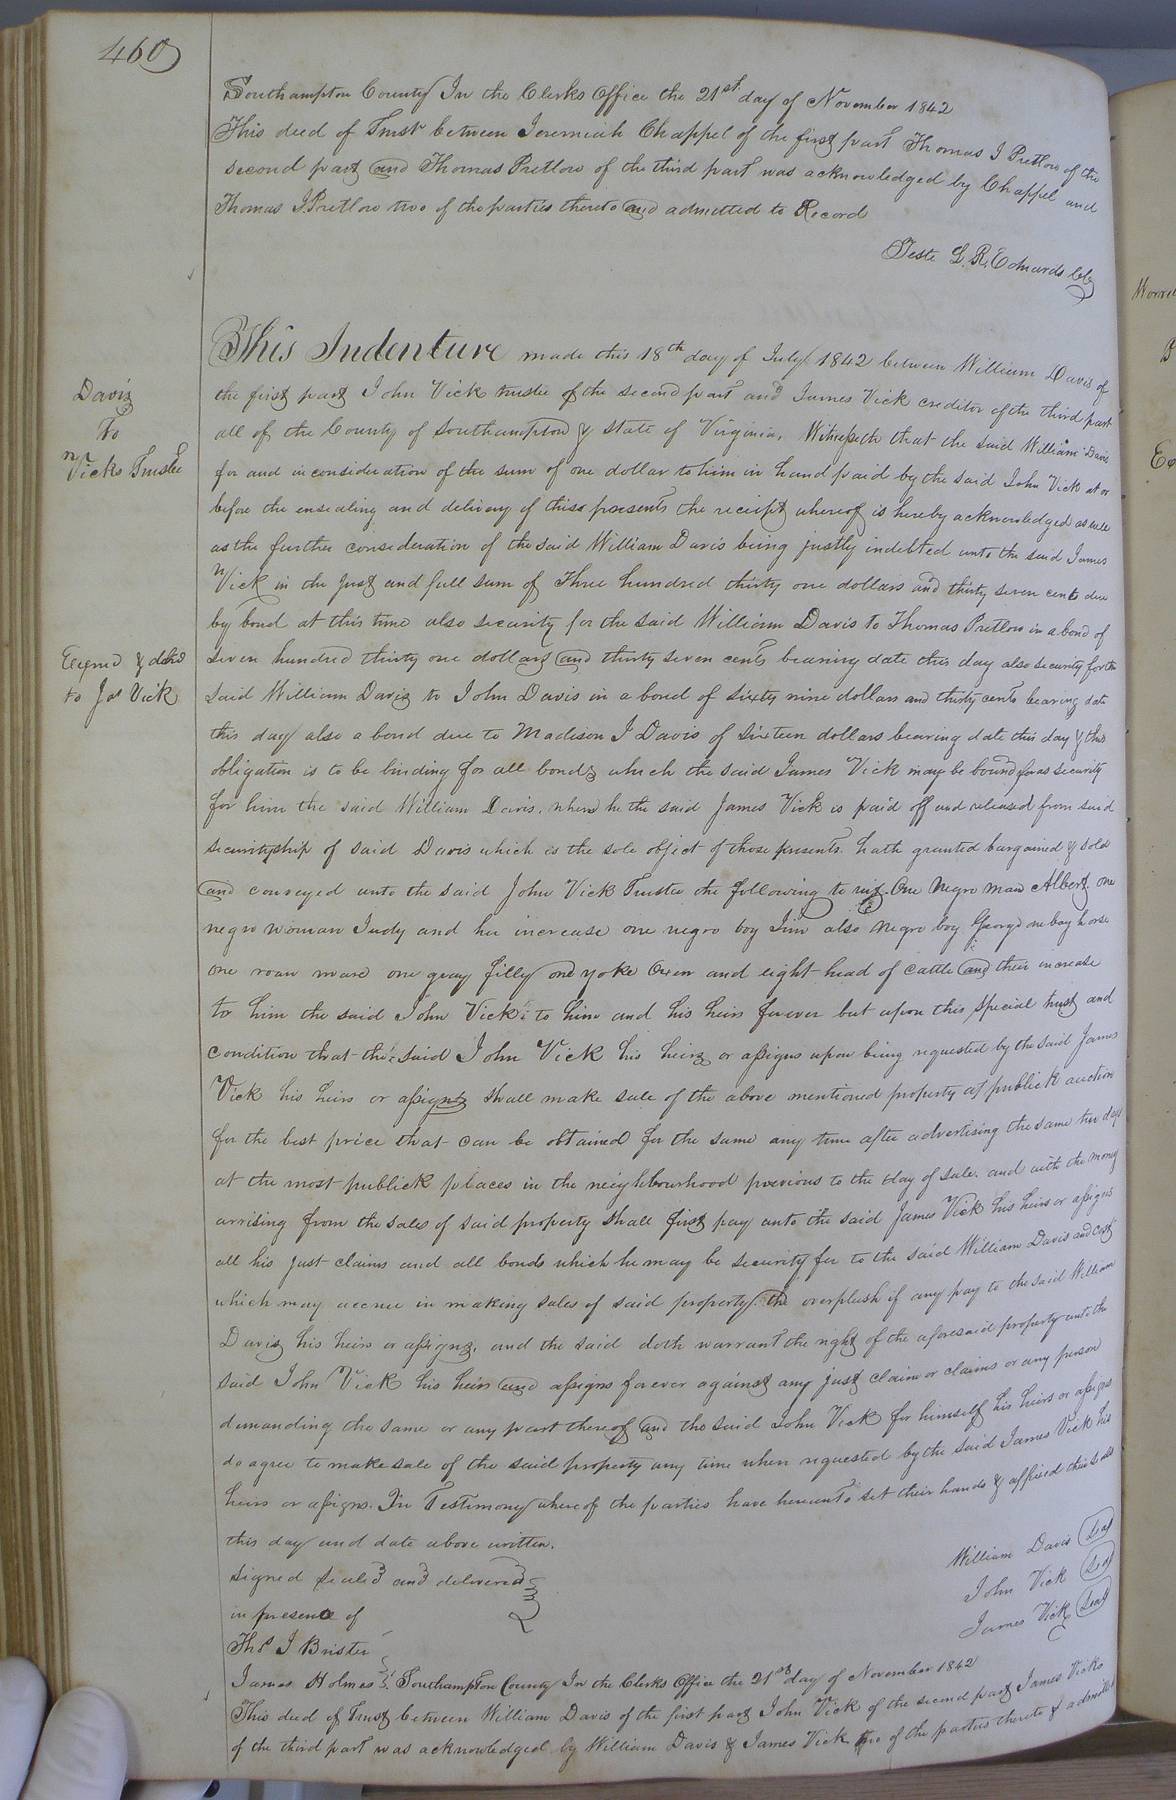 460
Southampton County In the Clerks Office the 21st day of November 1842
This deed of Trust between Jeremiah Chappel of the first part Thomas J Pretlow of the
second part and Thomas Pretlow of the third part was acknowledged by Chappel and
Thomas J Pretlow two of the parties thereto and admitted to Record
Teste L. R. Edwards Clk
Davis
To
Vicks Trustee
This Indenture made this 18th day of July 1842 between William Davis of
the first part John Vick trustee of the second part and James Vick creditor of the third part
all of the County of Southampton & State of Virginia, Witnesseth that the said William Davis
for and in consideration of the sum of one dollar to him in hand paid by the said John Vick at or
before the ensealing and delivery of thiss presents the receipt whereof is hereby acknowledged as well
as the further consideration of the said William Davis being justly indebted unto the said James
Vick in the just and full sum of Three hundred thirty one dollars and thirty seven cents due
by bond at this time also security for the said William Davis to Thomas Pretlow in a bond of
Exmd & deld
to Jas Vick
Seven hundred thirty one dollars and thirty seven cents bearing date this day also security for the
said William Davis to John Davis in a bond of sixty nine dollars and thirty cents bearing date
this day also a bond due to Madison J Davis of Sixteen dollars bearing date this day & this
obligation is to be binding for all bonds which the said James Vick may be bound for as security
for him the said William Davis. when he the said James Vick is paid off and released from said
securityship of said Davis which is the sole object of those presents. hath granted bargained & sold
and conveyed unto the said John Vick Trustee the following to wit. One Negro man Albert one
negro woman Judy and her increase one negro boy Jim also negro boy George one bay horse
one roan mare one gray filly one yoke Oxen and eight head of cattle and their increase
to him the said John Vick to him and his heirs forever but upon this special trust and
condition that the said John Vick his heirs or assigns upon being requested by the said James
Vick his heirs or assigns shall make sale of the above mentioned property at publick auction
for the best price that can be obtained for the same any time after advertising the same ten days
at the most publick places in the neighbourhood previous to the day of sale. and with the money
arrising from the sales of said property shall first pay unto the said James Vick his heirs or assigns
all his just claims and all bonds which he may be security for to the said William Davis and cost
which may accrue in making sales of said property. the overplush if any pay to the said William
Davis his heirs or assigns. and the said doth warrant the right of the aforesaid property unto the
said John Vick his heirs and assigns forever against any just claim or claims or any person
demanding the same or any part thereof and the said John Vick for himself his heirs or assigns
do agree to make sale of the said property any time when requested by the said James Vick his
heirs or assigns. In Testimony whereof the parties have hereunto set their hands & affixed their seals
this day and date above written.
Signed Sealed and delivered
in presence of
Thos J Brister
James Holmes
William Davis Seal
John Vick Seal
James Vick Seal
Southampton County In the Clerks Office the 21st day of November 1842
This deed of Trust between William Davis of the first part John Vick of the second part James Vicks
of the third part was acknowledged by William Davis & James Vick two of the parties thereto & admitted